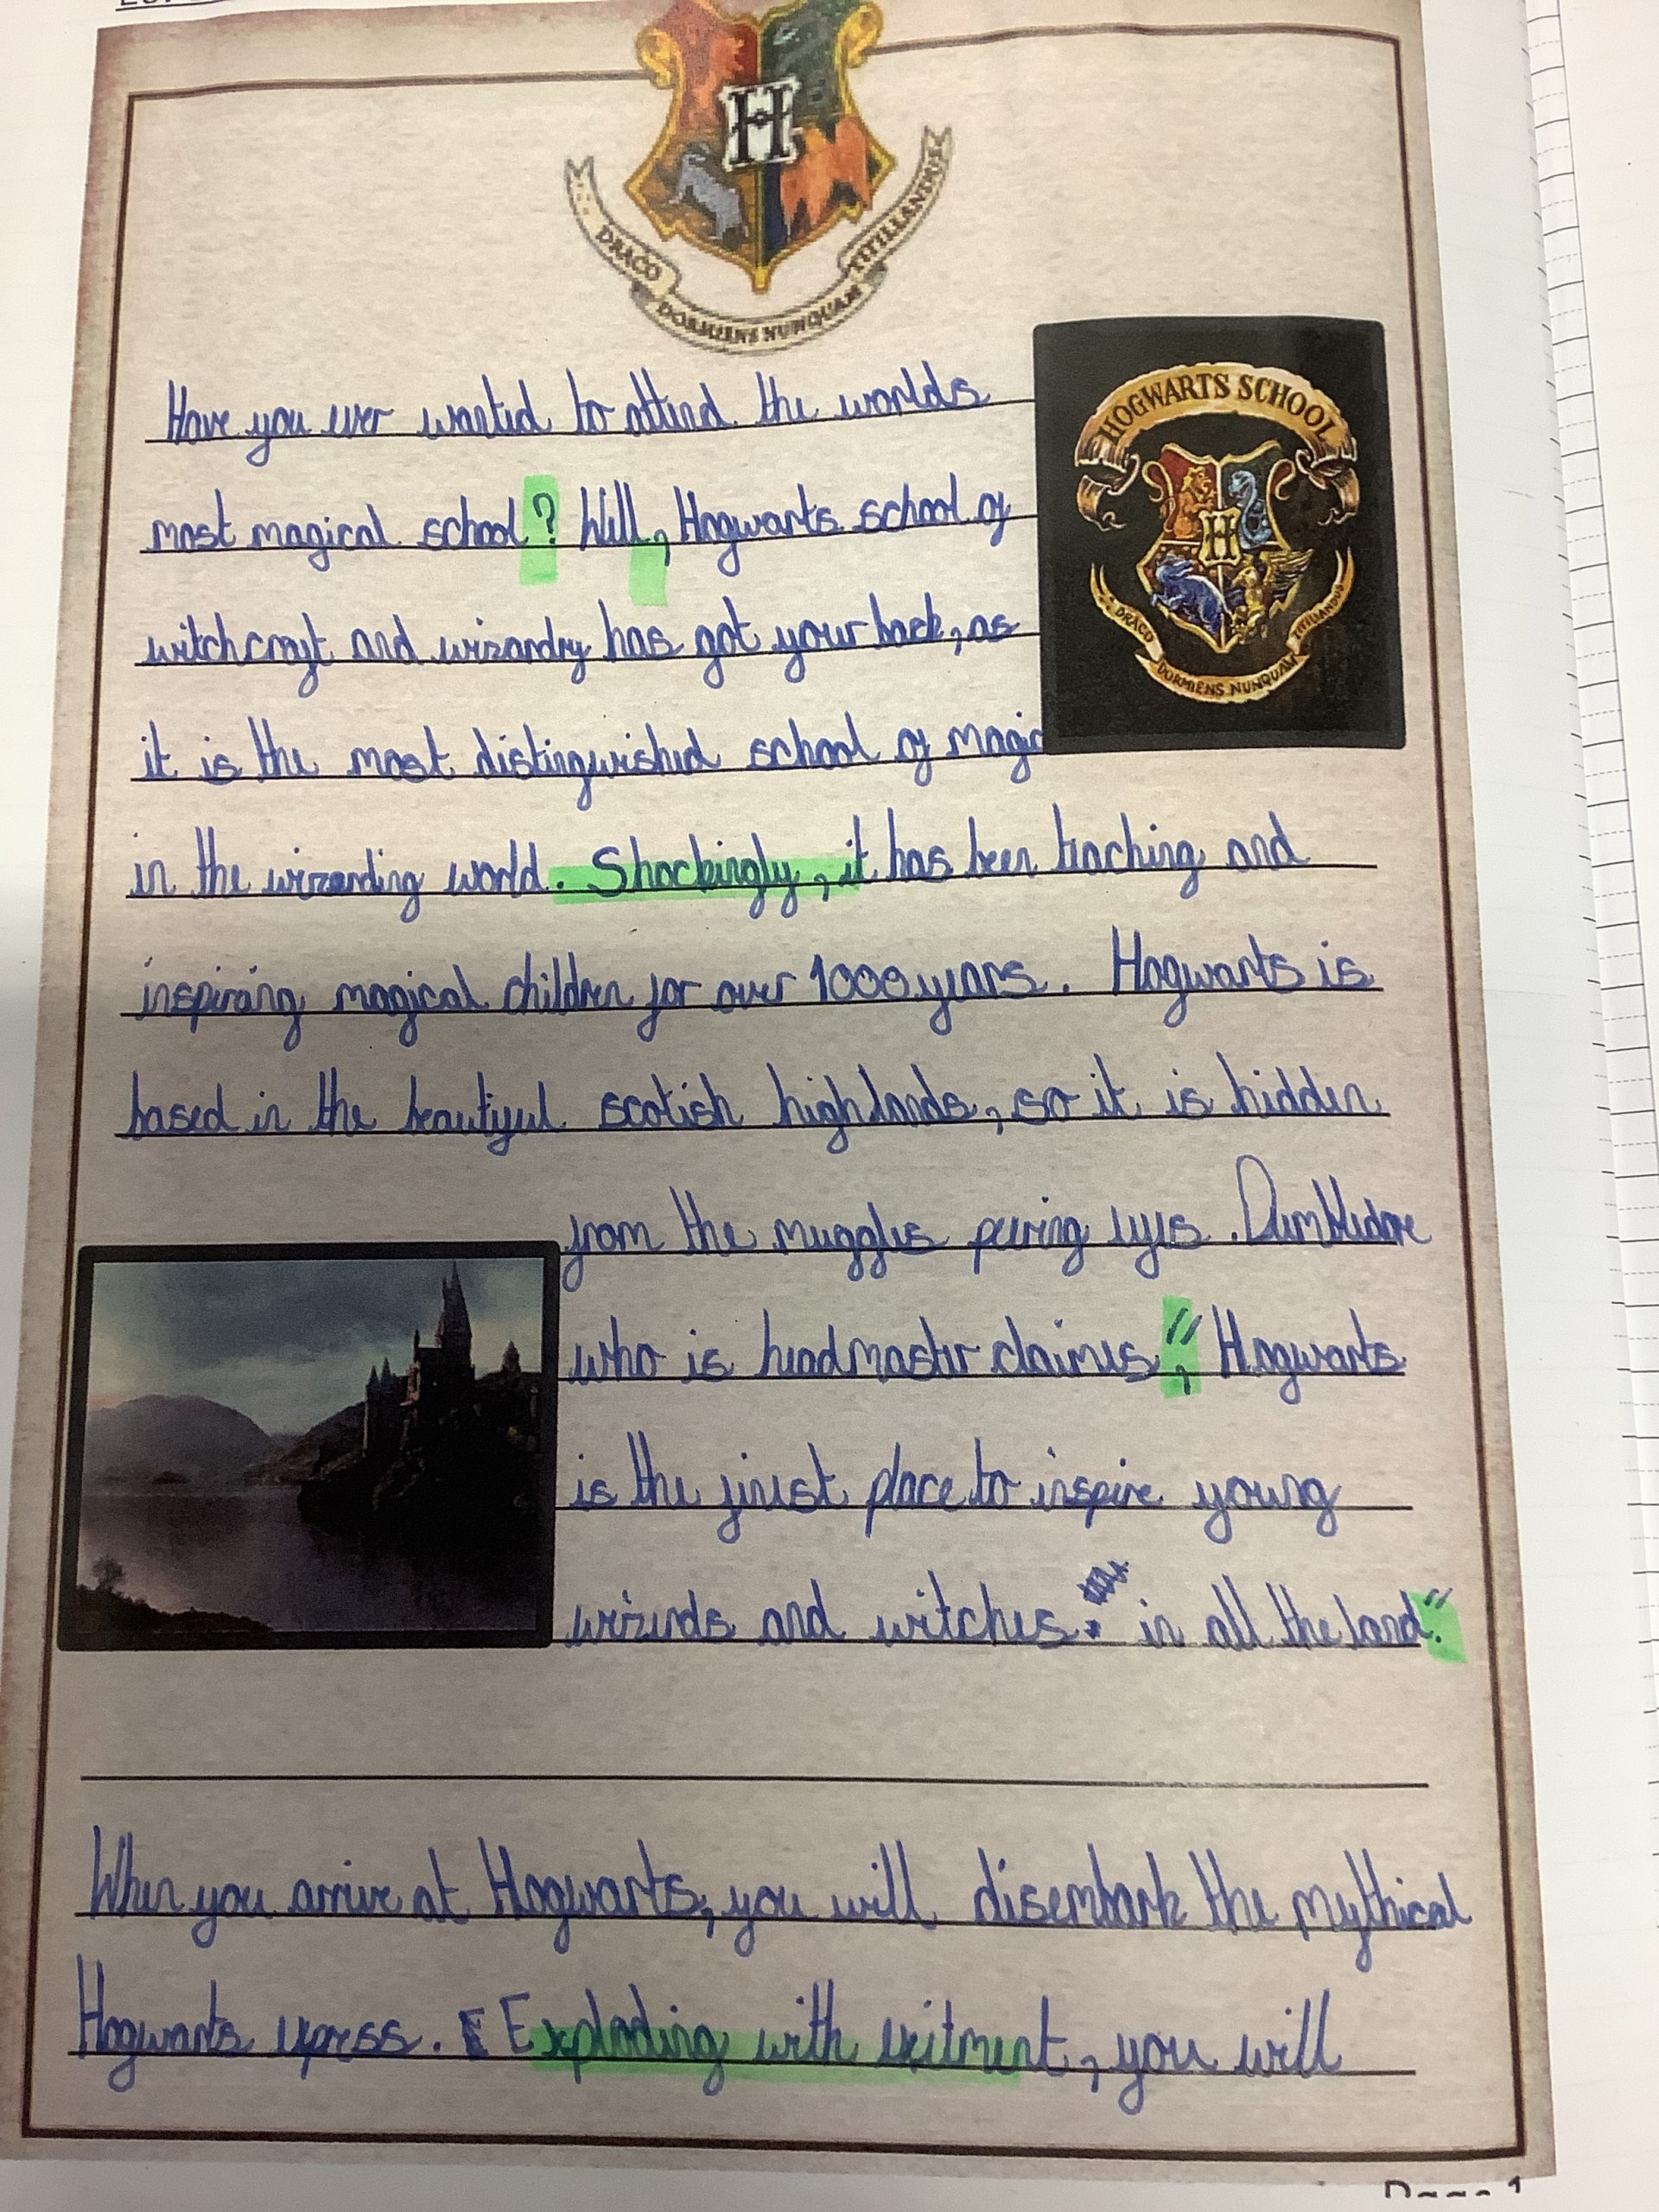 H
DRACO DORMIENS NUNQUAM TITILLANDUS
HOGWARTS SCHOOL
H
DRACO DORMIENS NUNQUAM TITILLANDUS
Have you ever wanted to attend the worlds
most magical school? Well, Hogwarts school of
witchcraft and wizardry has got your back, as
it is the most distingwished school of magic
in the wizarding world. Shockingly, it has been teaching and
inspiring magical children for over 1000 years. Hogwarts is
based in the beautiful scotish highlands, so it is hidden
from the muggles peering eyes. Dumbledore
who is headmaster claimes," Hogwarts
is the finest place to inspire young
wizerds and witches in all the land."
When you arrive at Hogwarts, you will disembark the mythical
Hogwarts express. Exploding with exitment, you will
Page 1